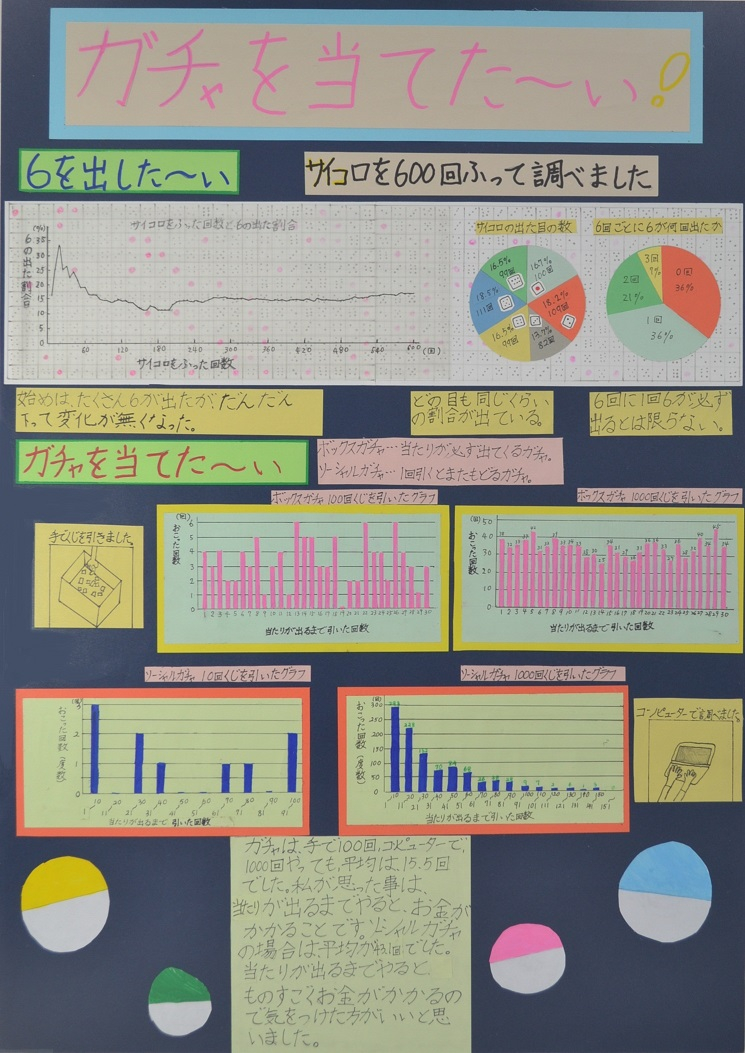 ガチャを当てた〜い!
6を出した〜い
サイコロを600回ふって調べました
サイコロをふった回数と6の出た割合
(%)
35
30
25
20
15
10
5
0
6の出た割合
60
120
180
240
300
360
420
480
540
600
(回)
サイコロをふった回数
サイコロの出た目の数
16.7%
100回
18.2%
109回
13.7%
82回
16.5%
99回
18.5%
111回
16.5%
99回
6回ごとに6が何回出たか
0回
36%
1回
36%
2回
21%
3回
7%
始めは、たくさん6が出たがだんだん
下って変化が無くなった。
どの目も同じくらい
の割合が出ている。
6回に1回6が必ず
出るとは限らない。
ガチャを当てた〜い
ボックスガチャ…当たりが必ず出てくるガチャ。
ソーシャルガチャ…1回引くとまたもどるガチャ。
手でくじを引きました。
ボックスガチャ 100回くじを引いたグラフ
(回)
おこった回数
6
5
4
3
2
1
0
当たりが出るまで引いた回数
ボックスガチャ 1000回くじを引いたグラフ
(回)
おこった回数
50
40
30
20
10
0
当たりが出るまで引いた回数
ソーシャルガチャ 10回くじを引いたグラフ
おこった回数(度数)
3
2
1
0
当たりが出るまで引いた回数
ソーシャルガチャ 1000回くじを引いたグラフ
(回)
おこった回数(度数)
300
250
200
150
100
50
0
当たりが出るまで引いた回数
コンピューターで調べました。
ガチャは、手で100回、コンピューターで、
1000回やっても、平均は15.5回
でした。私が思った事は、
当たりが出るまでやると、お金が
かかることです。ソーシャルガチャ
の場合は、平均が回でした。
当たりが出るまでやると
ものすごくお金がかかるの
で気をつけた方がいいと思
いました。